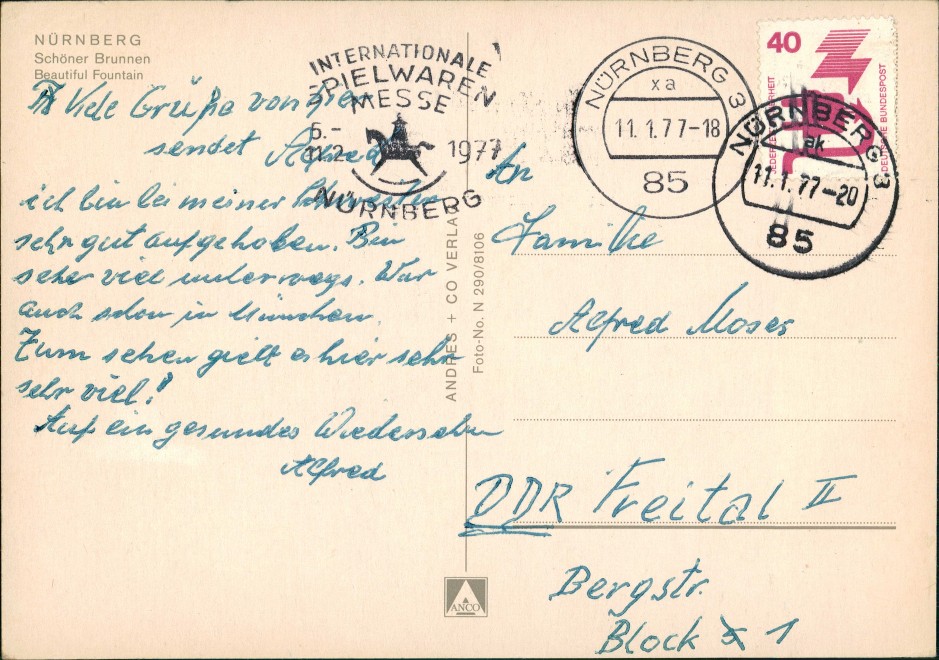 NÜRNBERG
Schöner Brunnen
Beautiful Fountain
Viele Grüße von hier
sendet Alfred
ich bin bei meiner
sehr gut aufgehoben. Bin
sehr viel unterwegs. War
auch schon in München.
Zum sehen giebt es hier sehr
sehr viel!
Auf ein gesundes Wiedersehen
Alfred
INTERNATIONALE
SPIELWAREN
MESSE
6.–
11.2. 1977
NÜRNBERG
ANDRES + CO VERLAG
Foto-No. N 290/8106
NÜRNBERG 3
xa
11.1.77-18
85
40
JEDERZEIT SICHERHEIT
DEUTSCHE BUNDESPOST
NÜRNBERG 3
ak
11.1.77-20
85
An
Familie
Alfred Moser
DDR Freital II
Bergstr.
Block 1
ANCO